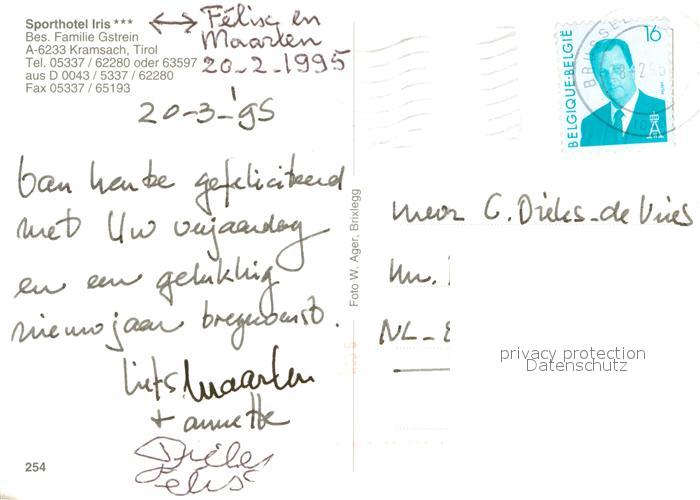 Sporthotel Iris ***
Bes. Familie Gstrein
A-6233 Kramsach, Tirol
Tel. 05337 / 62280 oder 63597
aus D 0043 / 5337 / 62280
Fax 05337 / 65193
Félise en
Maarten
20-2-1995
20-3-'95
van harte gefeliciteerd
met Uw verjaardag
en een gelukkig
nieuwjaar toegewenst.
liefs Maarten
+ annette
254
Foto W. Ager, Brixlegg
BELGIQUE·BELGIE
16
Mevr C. Dieks-de Vries
NL-
privacy protection
Datenschutz